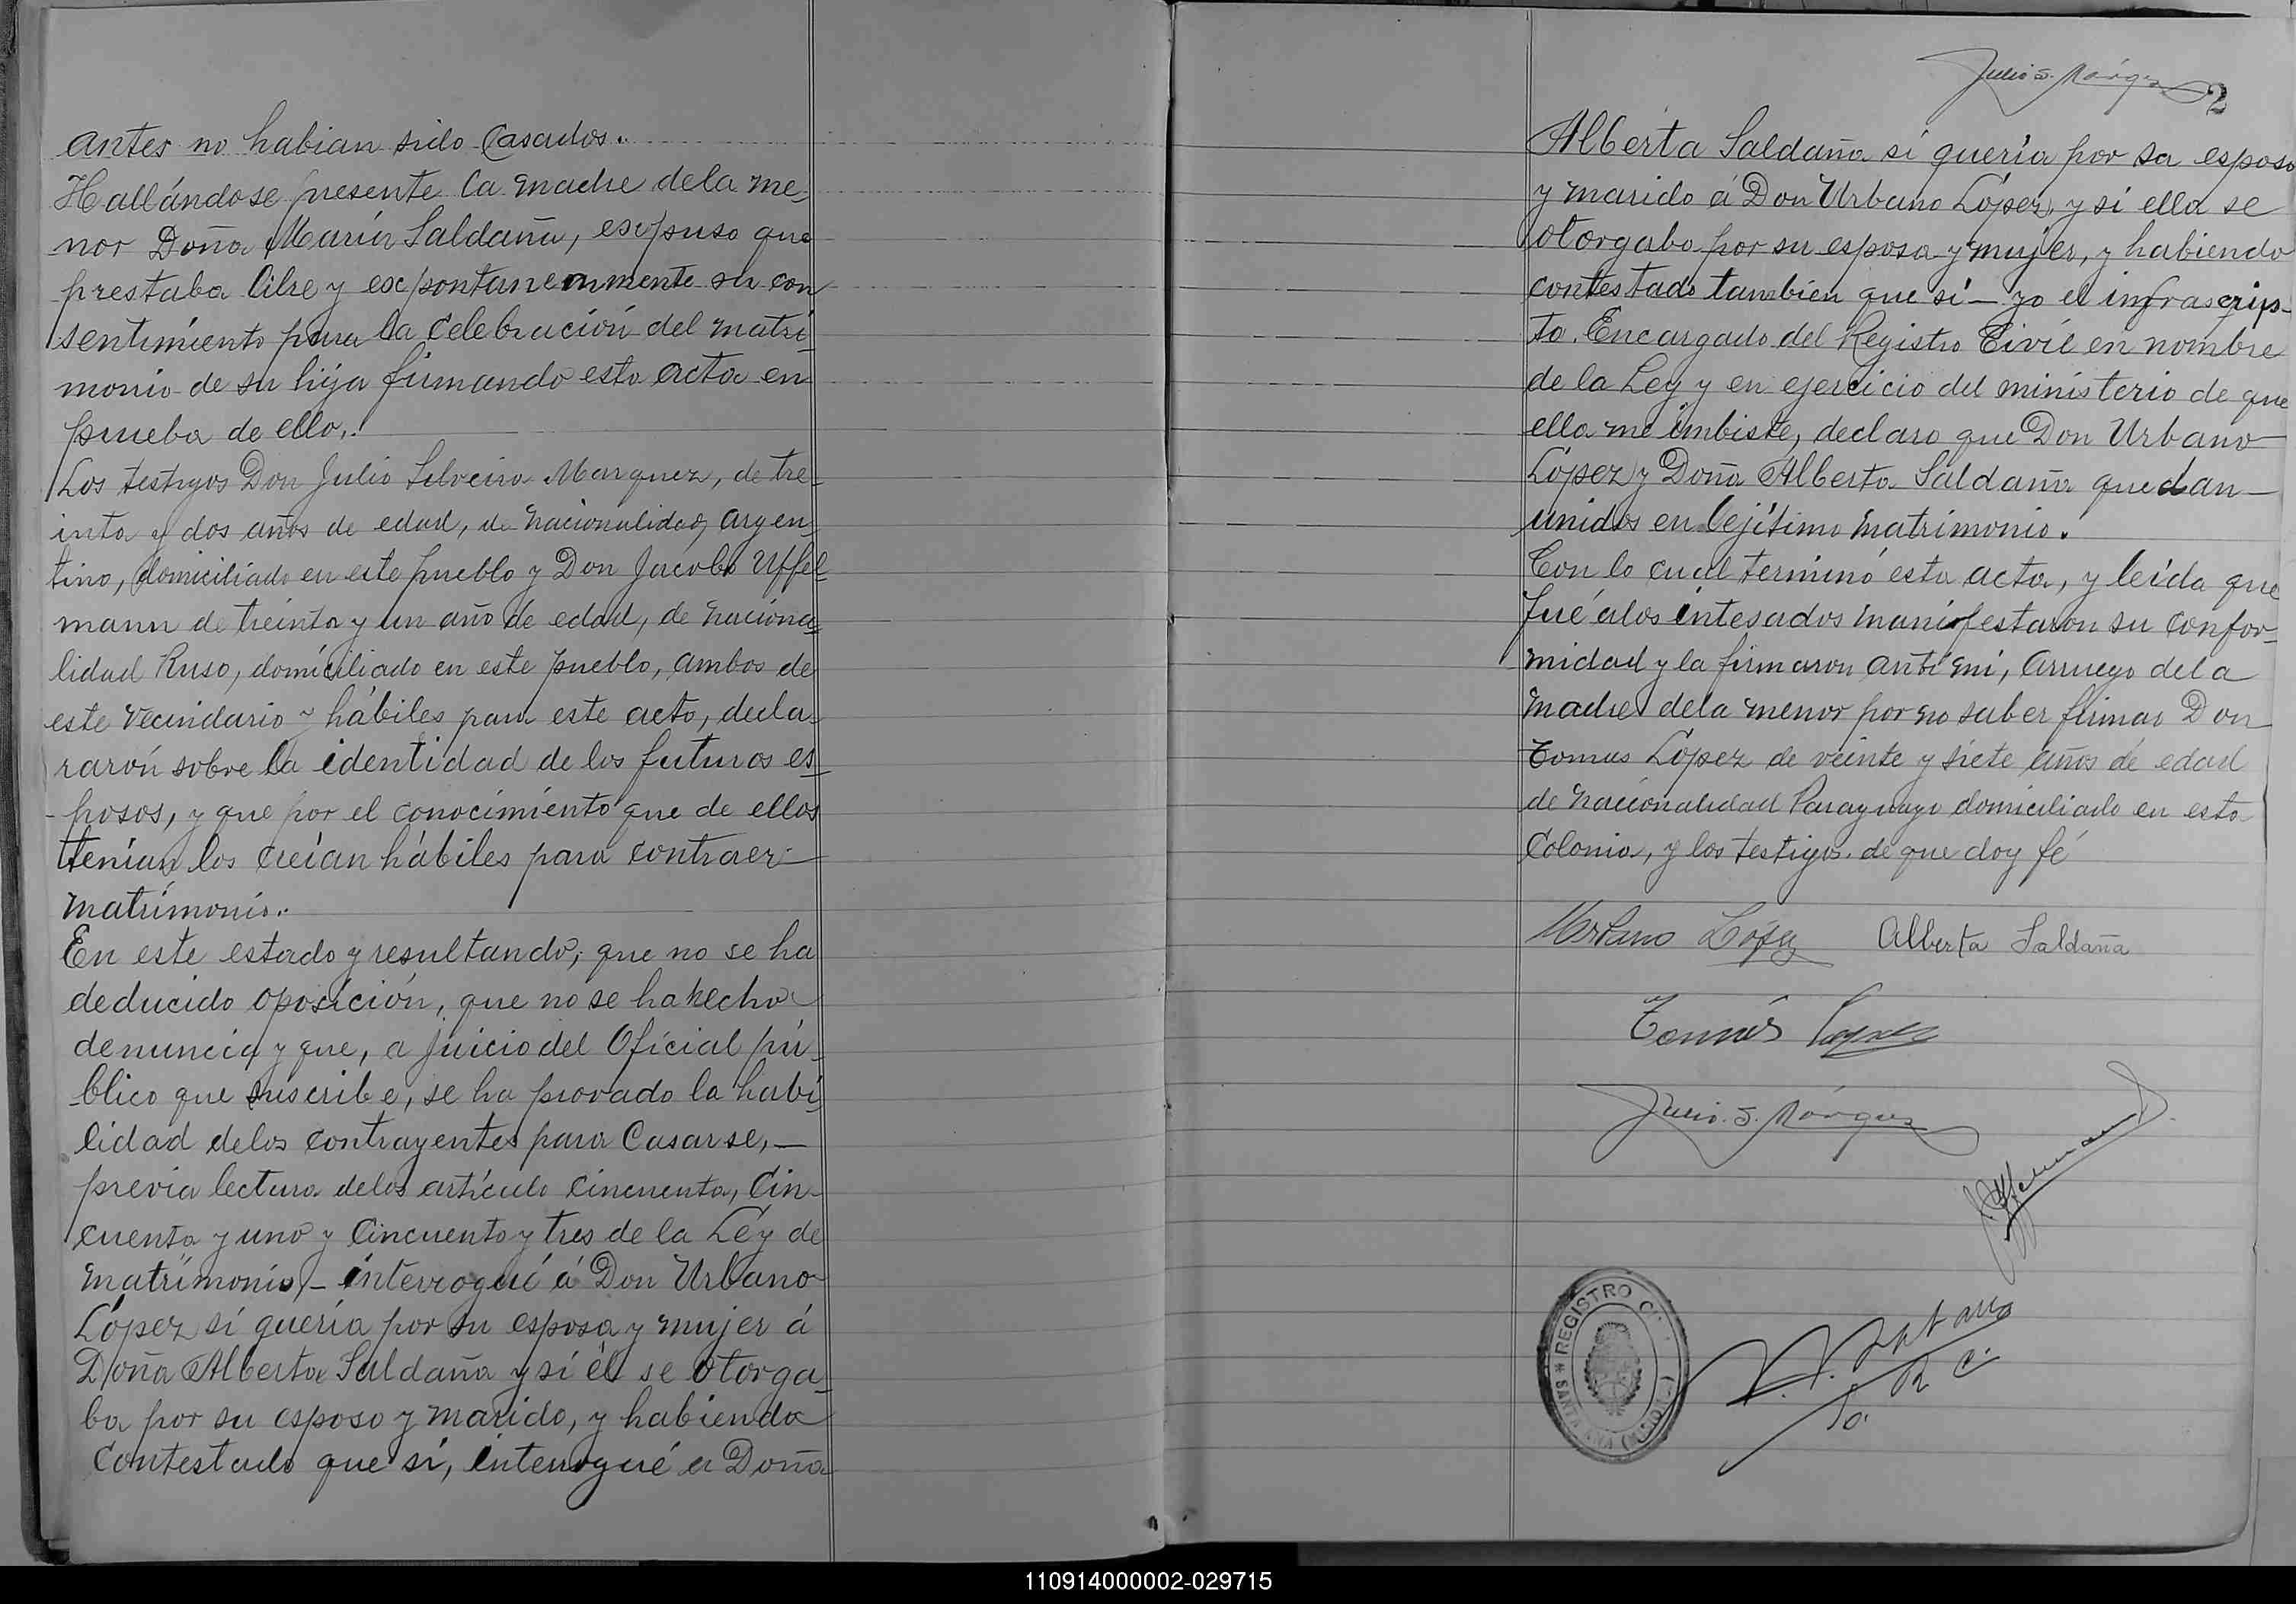 antes no habian sido Casados.
Hallándose presente la madre dela me-
nor Doña María Saldaña, expuso que
prestaba libre y expontaneamente su con
sentimiento para la Celebración del matri-
monio de su hija firmando esta acta en
prueba de ello.
Los testigos Don Julio Silveira Marquez, de tre-
inta y dos años de edad, de nacionalidad argen-
tino, domiciliado en este pueblo y Don Jacobo Uffel-
mann de treinta y un año de edad, de naciona-
lidad Ruso, domiciliado en este pueblo, ambos de
este vecindario y hábiles para este acto, decla-
rarón sobre la identidad de los futuros es-
posos, y que por el conocimiento que de ellos
tenian los creían hábiles para contraer
matrimonio.
En este estado y resultando, que no se ha
deducido oposición, que no se ha hecho
denuncia, y que, a juicio del Oficial pú-
blico que suscribe, se ha provado la habi-
lidad delos contrayentes para Casarse,
previa lectura delos artículo Cincuenta, Cin-
cuenta y uno y Cincuenta y tres de la Ley de
matrimonio,- interrogué á Don Urbano
López si quería por su esposa y mujer á
Doña Alberta Saldaña y si él se otorga-
ba por su esposo y marido, y habiendo
Contestado que sí, interrogué a Doña
Julio S. Márquez
2
Alberta Saldaña si quería por su esposo
y marido á Don Urbano López, y si ella se
otorgaba por su esposa y mujer, y habiendo
contestado tambien que sí - yo el infrascrip-
to. Encargado del Registro Civil en nombre
de la Ley y en ejercicio del ministerio de que
ella me imbiste, declaro que Don Urbano
López y Doña Alberta Saldaña quedan
unidos en lejítimo matrimonio.
Con lo cual terminó esta acta, y leída que
fué alos intesados manifestaron su confor-
midad y la firmaron ante mi, arruego dela
madre dela menor por no saber firmar Don
Tomas López de veinte y siete años de edad
de nacionalidad Paraguayo domiciliado en esta
Colonia, y los testigos. de que doy fé
Urbano López Alberta Saldaña
Tomás Lopez
Julio. S. Márquez
REGISTRO
SANTA ANA
110914000002-029715